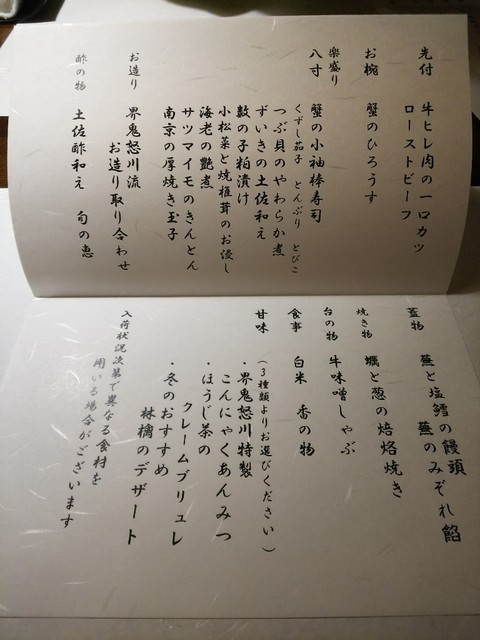 先付　牛ヒレ肉の一口カツ
ローストビーフ
お椀　蟹のひろうす
楽盛り
八寸　蟹の小袖棒寿司
くずし茄子　とんぶり　とびこ
つぶ貝のやわらか煮
ずいきの土佐和え
数の子粕漬け
小松菜と焼椎茸のお浸し
海老の艶煮
サツマイモのきんとん
南京の厚焼き玉子
お造り　界鬼怒川流
お造り取り合わせ
酢の物　土佐酢和え　旬の恵
蓋物　蕪と塩鱈の饅頭
蕪のみぞれ餡
焼き物　蠣と葱の焙烙焼き
台の物　牛味噌しゃぶ
食事　白米　香の物
甘味　（３種類よりお選びください）
・界鬼怒川特製
こんにゃくあんみつ
・ほうじ茶の
クレームブリュレ
・冬のおすすめ
林檎のデザート
入荷状況次第で異なる食材を
用いる場合がございます